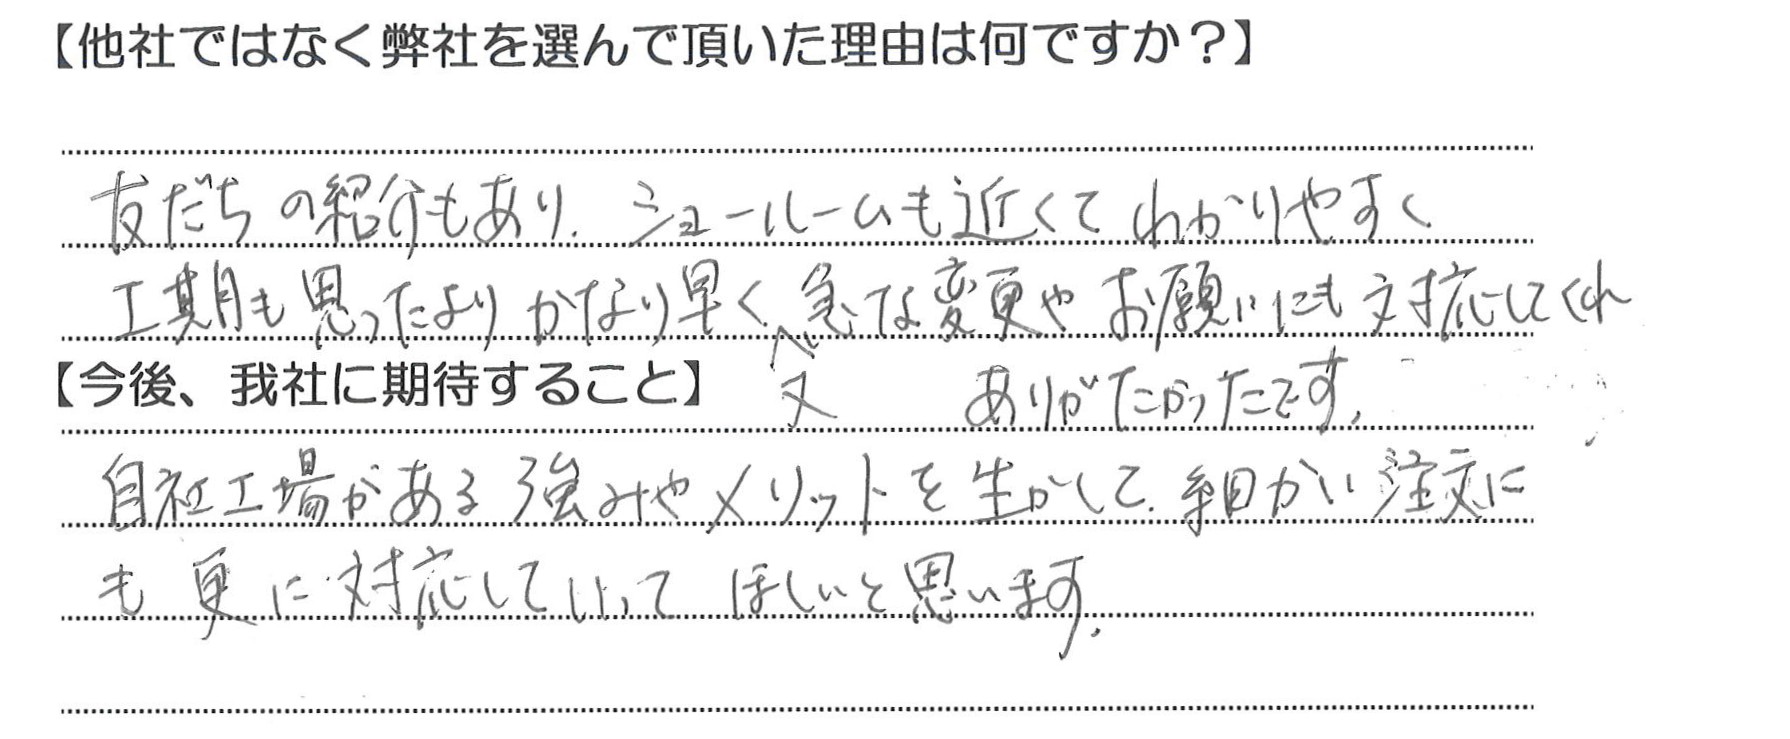 【他社ではなく弊社を選んで頂いた理由は何ですか？】
友だちの紹介もあり、ショールームも近くてわかりやすく
工期も思ったよりかなり早く、急な変更やお願いにも対応してくれ
又
ありがたかったです。
【今後、我社に期待すること】
自社工場がある強みやメリットを生かして、細かい注文に
も更に対応していってほしいと思います。